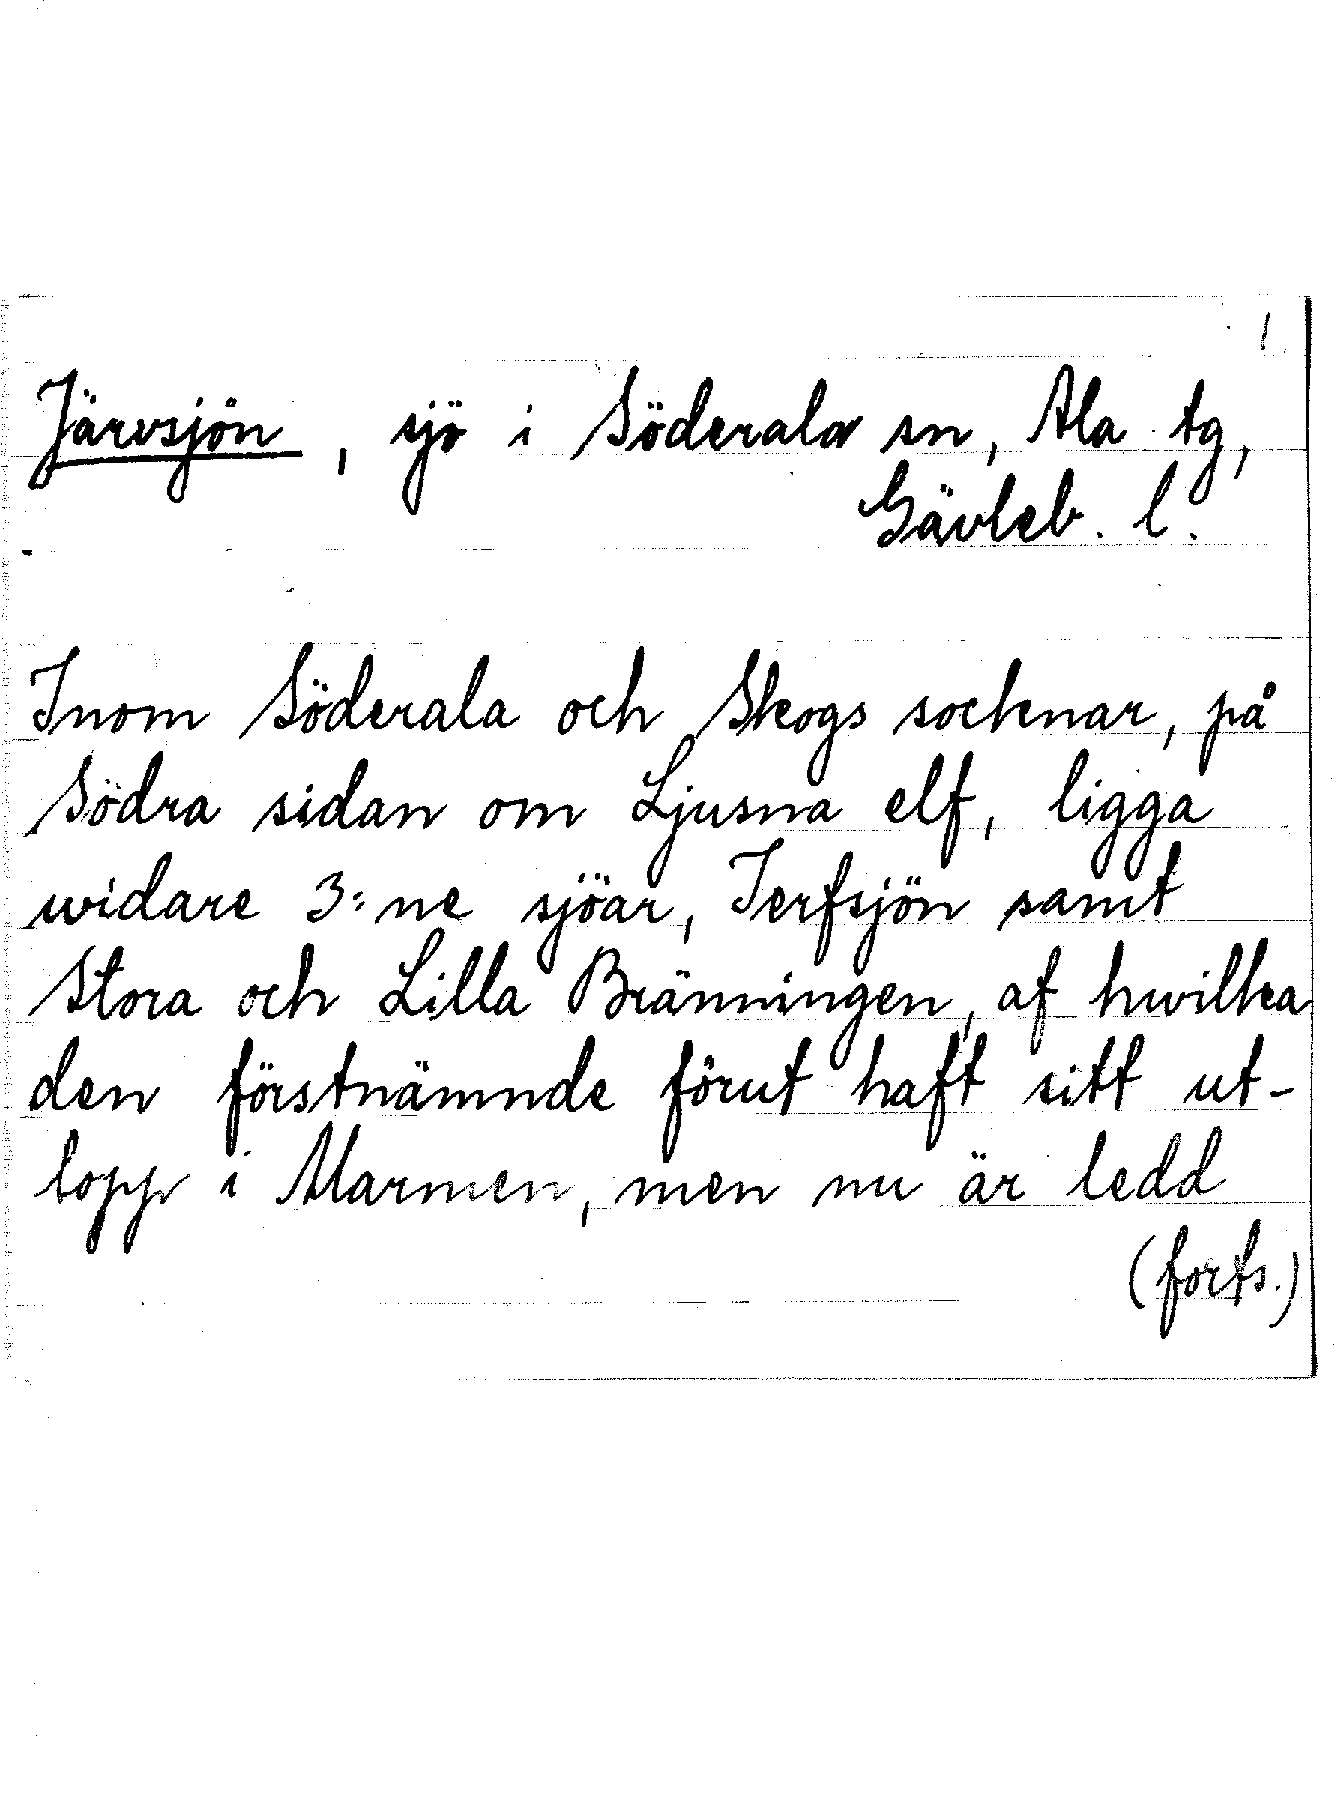 1
Järvsjön, sjö i Söderala sn, Ala tg,
Gävleb. l.
Inom Söderala och Skogs socknar, på
Södra sidan om Ljusna elf, ligga
widare 3:ne sjöar, Jerfsjön samt
Stora och Lilla Bränningen, af hwilka
den förstnämnde förut haft sitt ut-
lopp i Marmen, men nu är ledd
(forts.)